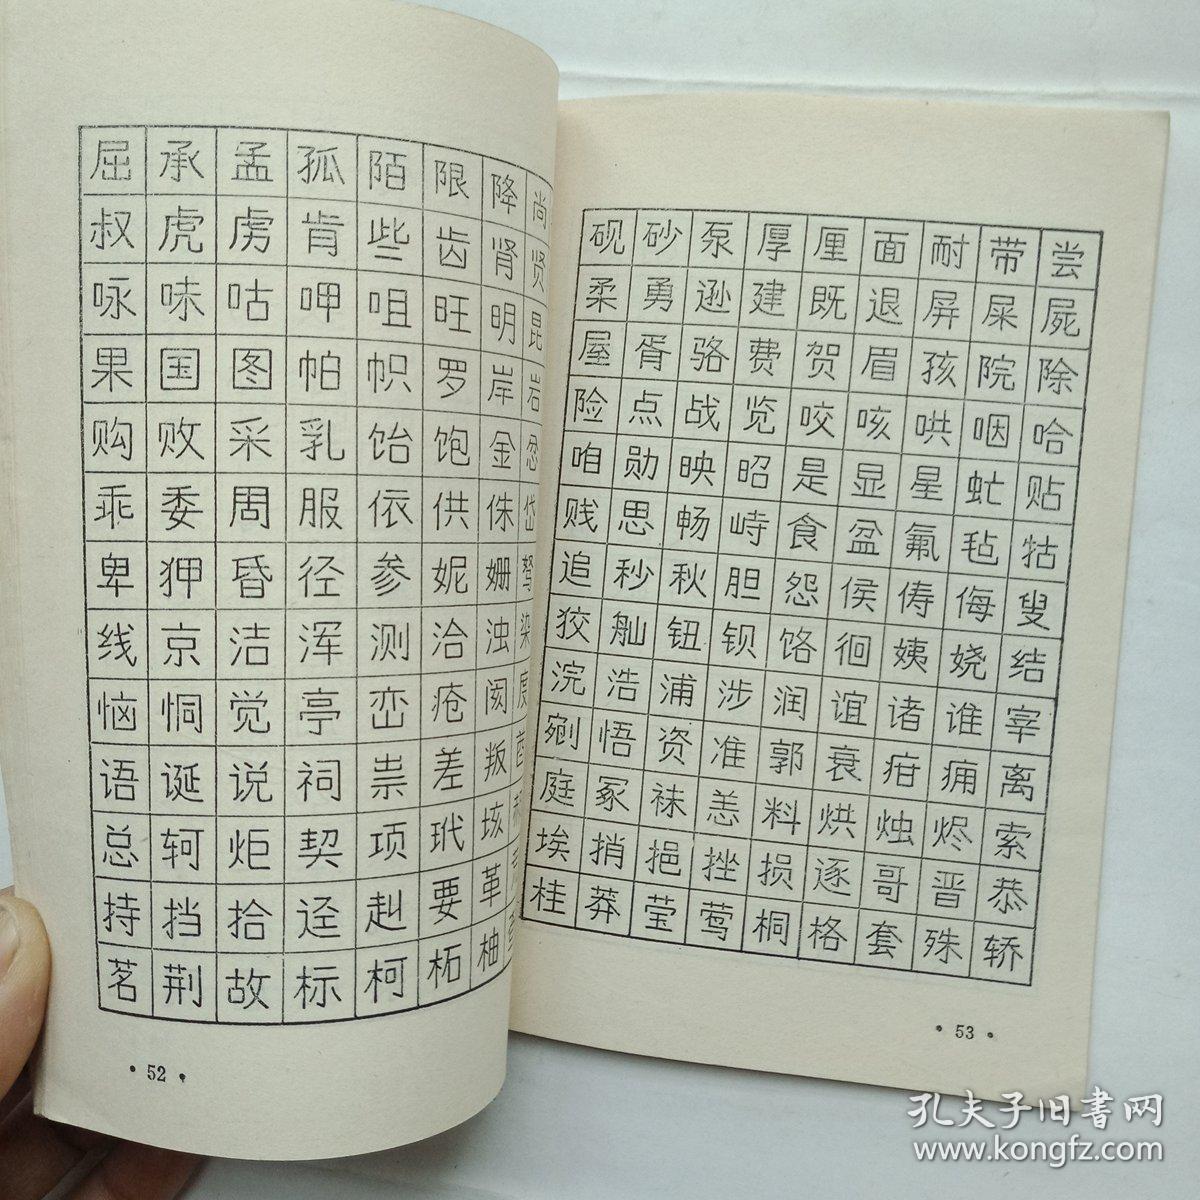 屈承孟孤陌限降尚
叔虎虏肯些齿肾贤
咏味咕呷咀旺明昆
果国图帕帜罗岸岩
购败采乳饴饱金忽
乖委周服依供侏岱
卑狎昏径参妮姗驽
线京洁浑测洽浊染
恼恫觉亭峦疮阂度
语诞说祠祟差叛
总轲炬契项玳垓
持挡拾迳赳要革
茗荆故标柯柘柚
• 52 •
砚砂泵厚厘面耐带尝
柔勇逊建既退屏屎屍
屋胥骆费贺眉孩院除
险点战览咬咳哄咽哈
咱勋映昭是显星虻贴
贱思畅峙食盆氟毡牯
追秒秋胆怨侯俦侮叟
狡舢钮钡饹徊姨娆结
浣浩浦涉润谊诸谁宰
剜悟资准郭衰疳痈离
庭冢袜恙料烘烛烬索
埃捎挹挫损逐哥晋恭
桂莽莹莺桐格套殊轿
• 53 •
孔夫子旧书网
www.kongfz.com